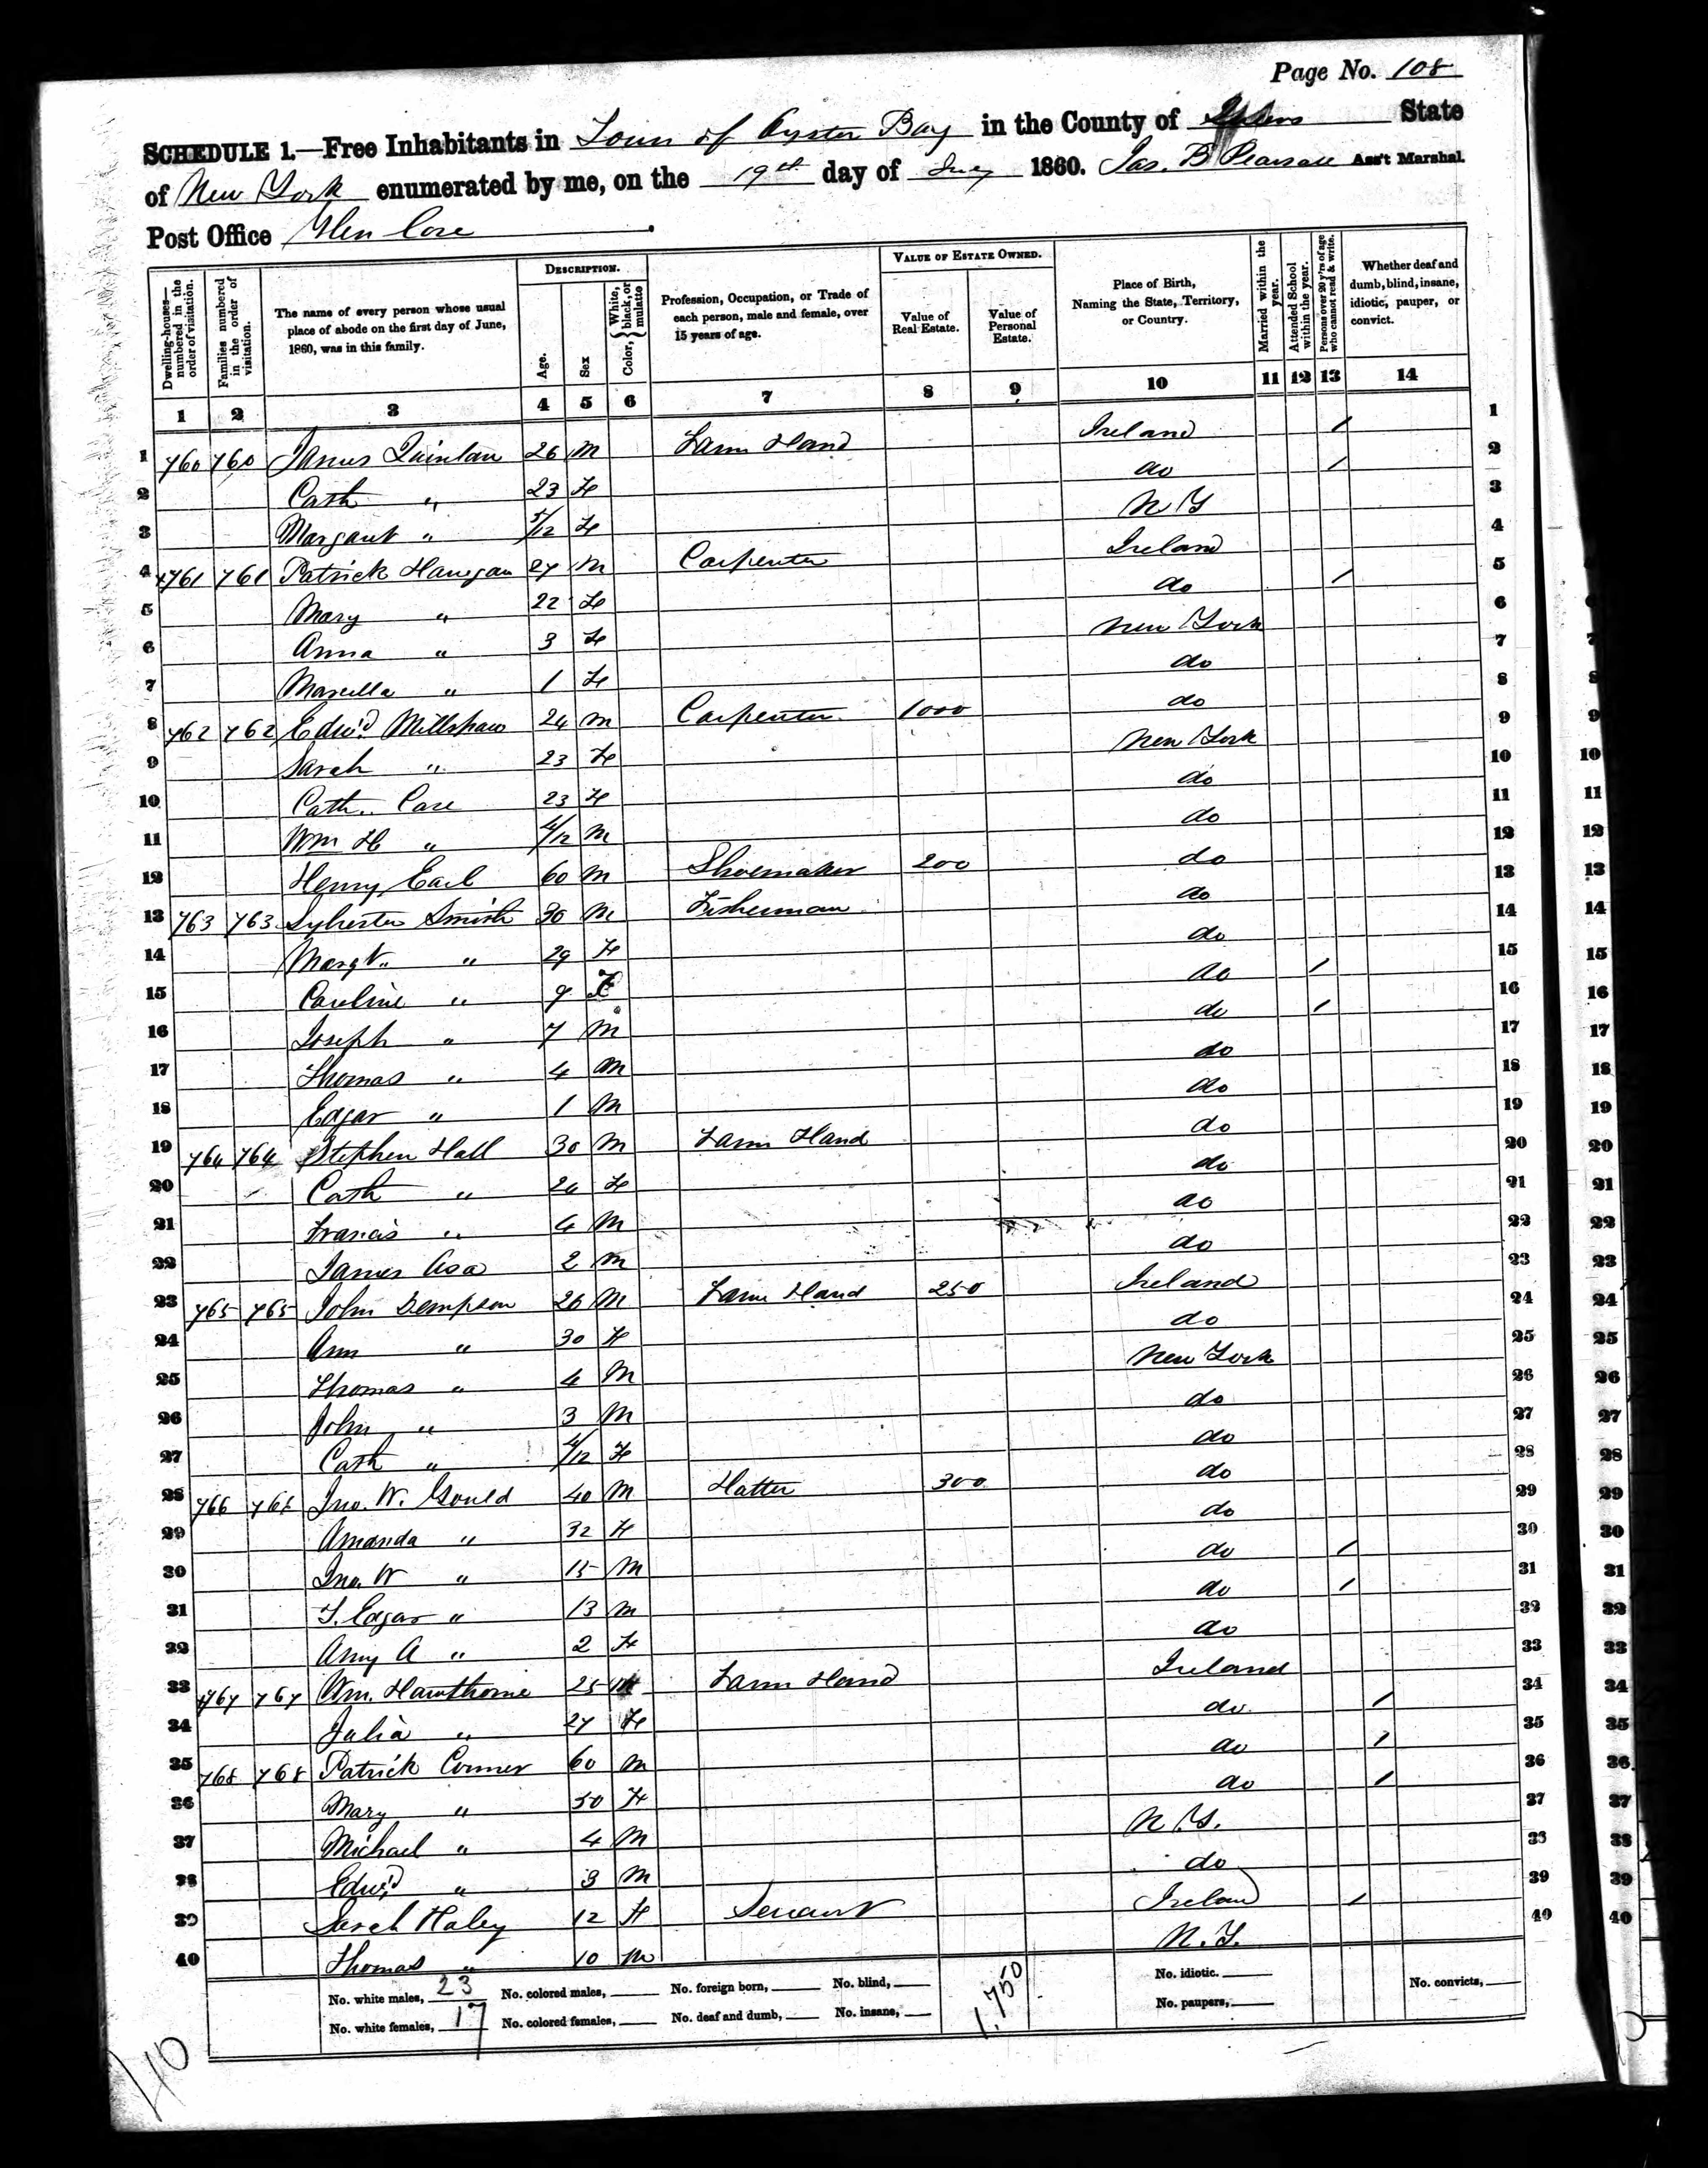 Page No. 108
SCHEDULE 1.—Free Inhabitants in Town of Oyster Bay in the County of Queens State
of New York enumerated by me, on the 19th day of July 1860. Jas. B Pearsall Ass't Marshal.
Post Office Glen Cove
Dwelling-houses—numbered in the order of visitation. Families numbered in the order of visitation. The name of every person whose usual place of abode on the first day of June, 1860, was in this family. DESCRIPTION. Age. Sex Color, White, black, or mulatto Profession, Occupation, or Trade of each person, male and female, over 15 years of age. VALUE OF ESTATE OWNED. Value of Real Estate. Value of Personal Estate. Place of Birth, Naming the State, Territory, or Country. Married within the year. Attended School within the year. Persons over 20 y'rs of age who cannot read & write. Whether deaf and dumb, blind, insane, idiotic, pauper, or convict.
1 2 3 4 5 6 7 8 9 10 11 12 13 14
1 760 760 James Quinlan 26 M Farm Hand Ireland / 1
2 Cath " 23 F do / 2
3 Margaret " 5/12 F N Y 3
4 761 761 Patrick Hanegan 27 M Carpenter Ireland 4
5 Mary " 22 F do / 5
6 Anna " 3 F New York 6
7 Marcella " 1 F do 7
8 762 762 Edw'd Millshaw 24 M Carpenter 1000 do 8
9 Sarah " 23 F New York 9
10 Cath. 23 F do 10
11 Wm H " 4/12 M do 11
12 Henry Earl 60 M Shoemaker 200 do 12
13 763 763 Sylvester Smith 30 M Fisherman do 13
14 Margt. " 29 F do 14
15 Caroline " 9 F do / 15
16 Joseph " 7 M do / 16
17 Thomas " 4 M do 17
18 Edgar " 1 M do 18
19 764 764 Stephen Hall 30 M Farm Hand do 19
20 Cath " 24 F do 20
21 Francis " 4 M do 21
22 James Asa 2 M do 22
23 765 765 John Dempson 26 M Farm Hand 250 Ireland 23
24 Ann " 30 F do 24
25 Thomas " 4 M New York 25
26 John " 3 M do 26
27 Cath " 4/12 F do 27
28 766 766 Jno. W. Gould 40 M Hatter 300 do 28
29 Amanda " 32 F do 29
30 Jno. W " 15 M do / 30
31 T. Edgar " 13 M do / 31
32 Amy A " 2 F do 32
33 767 767 Wm. Hawthorne 25 M Farm Hand Ireland 33
34 Julia " 27 F do / 34
35 768 768 Patrick Conner 60 M do / 35
36 Mary " 50 F do / 36
37 Michael " 4 M N.Y. 37
38 Edw'd " 3 M do 38
39 Sarah Haley 12 F Servant Ireland / 39
40 Thomas " 10 M N.Y. 40
No. white males, 23 No. colored males, No. foreign born, No. blind, 1,750 No. idiotic. No. convicts,
No. white females, 17 No. colored females, No. deaf and dumb, No. insane, No. paupers,
40